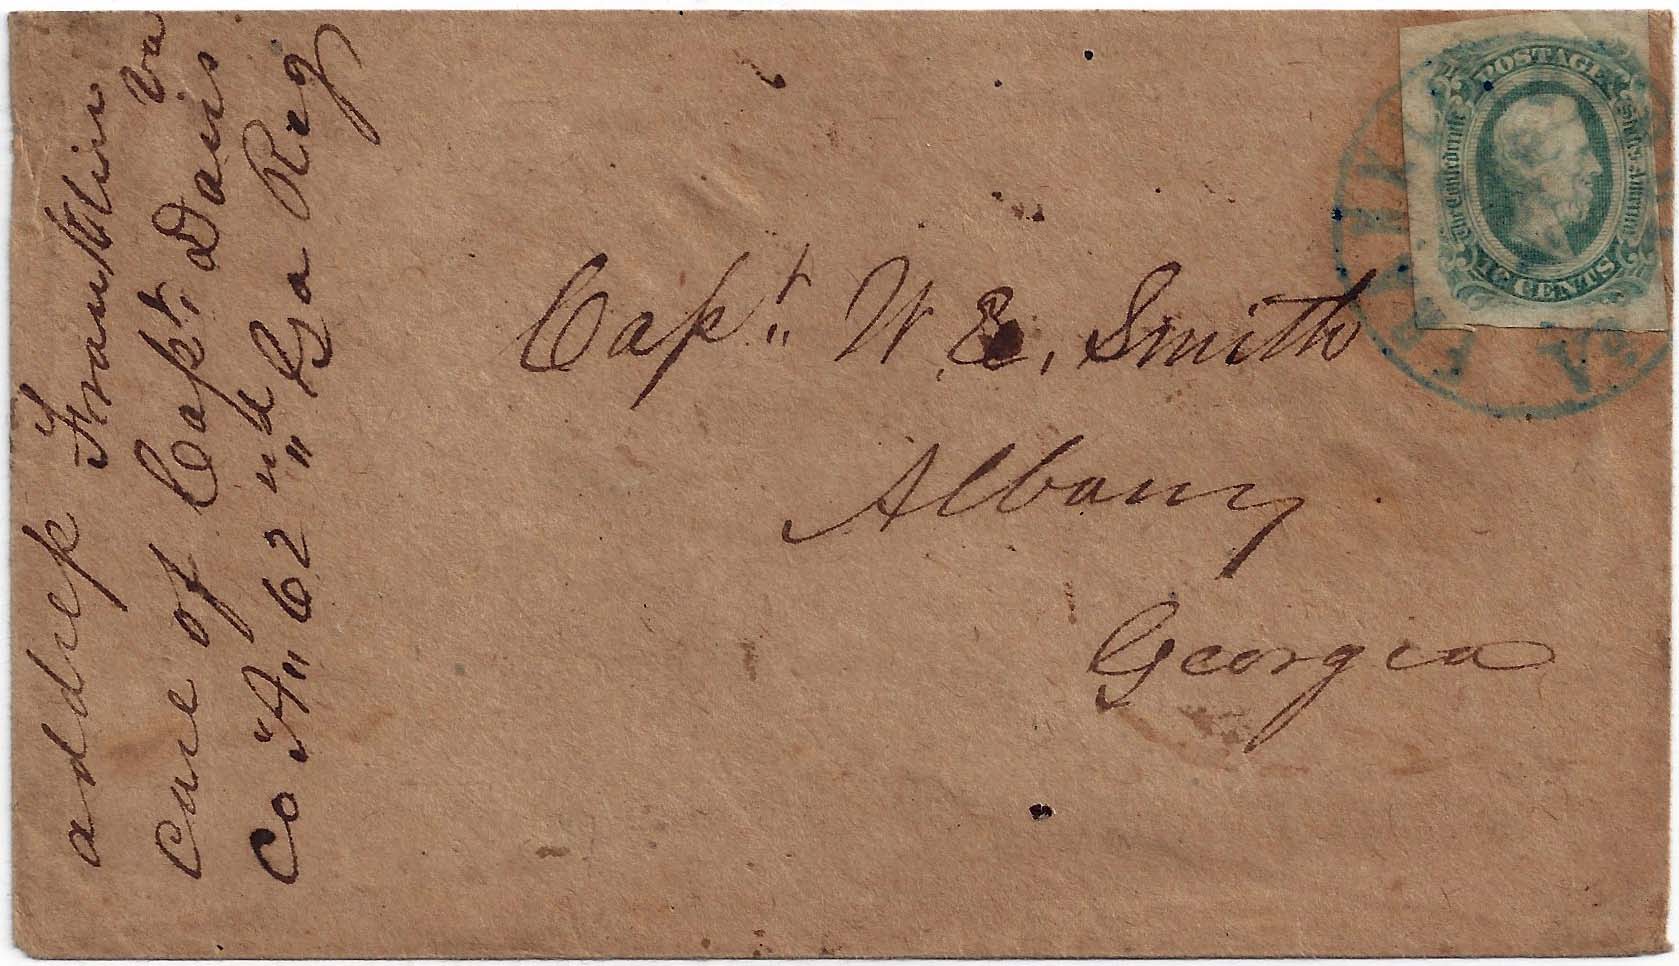 address Franklin va
care of Capt, Davis
Co "A" 62 nd "Ga Reg
Capt " W. E. Smith
Albany
Georgia
POSTAGE
The Confederate
States America
10 CENTS
FRANK
VA